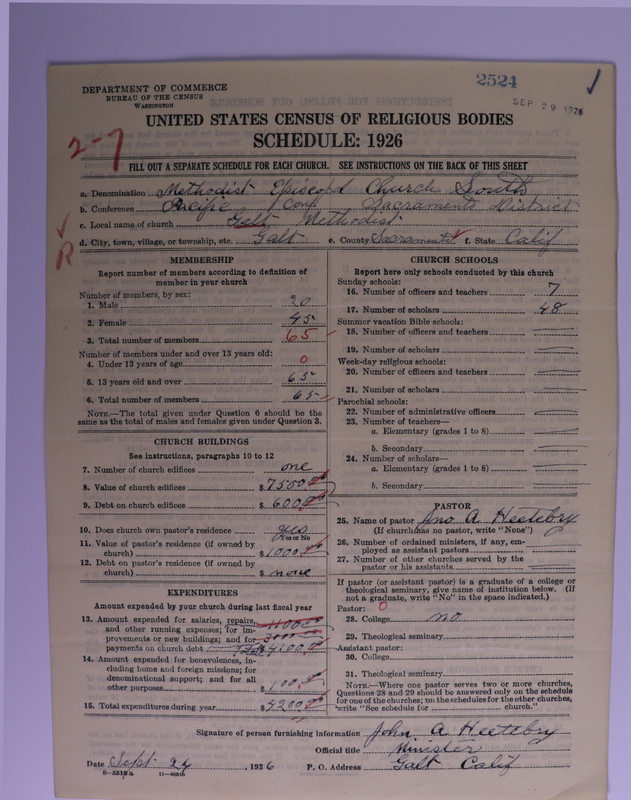 2524
SEP 29 1926
DEPARTMENT OF COMMERCE
BUREAU OF THE CENSUS
WASHINGTON
UNITED STATES CENSUS OF RELIGIOUS BODIES
SCHEDULE: 1926
2-7
FILL OUT A SEPARATE SCHEDULE FOR EACH CHURCH. SEE INSTRUCTIONS ON THE BACK OF THIS SHEET
a. Denomination Methodist Episcopal Church South
b. Conference Pacific Conf Sacramento District
c. Local name of church Galt Methodist
R
d. City, town, village, or township, etc. Galt e. County Sacramento f. State Calif
MEMBERSHIP
Report number of members according to definition of
member in your church
Number of members, by sex:
1. Male 20
2. Female 45
3. Total number of members 65
Number of members under and over 13 years old:
4. Under 13 years of age 0
5. 13 years old and over 65
6. Total number of members 65
NOTE.—The total given under Question 6 should be
same as the total of males and females given under Question 3.
CHURCH BUILDINGS
See instructions, paragraphs 10 to 12
7. Number of church edifices one
8. Value of church edifices $ 7500.00
9. Debt on church edifices $ 600.00
10. Does church own pastor's residence yes
Yes or No
11. Value of pastor's residence (if owned by
church) $ 1000.00
12. Debt on pastor's residence (if owned by
church) $ none
EXPENDITURES
Amount expended by your church during last fiscal year
13. Amount expended for salaries, repairs,
and other running expenses; for im-
provements or new buildings; and for
payments on church debt Total 4100.00
14. Amount expended for benevolences, in-
cluding home and foreign missions; for
denominational support; and for all
other purposes $ 100.00
15. Total expenditures during year $ 4200.00
CHURCH SCHOOLS
Report here only schools conducted by this church
Sunday schools:
16. Number of officers and teachers 7
17. Number of scholars 48
Summer vacation Bible schools:
18. Number of officers and teachers
19. Number of scholars
Week-day religious schools:
20. Number of officers and teachers
21. Number of scholars
Parochial schools:
22. Number of administrative officers
23. Number of teachers—
a. Elementary (grades 1 to 8)
b. Secondary
24. Number of scholars—
a. Elementary (grades 1 to 8)
b. Secondary
PASTOR
25. Name of pastor Jno A Heetebry
(If church has no pastor, write "None")
26. Number of ordained ministers, if any, em-
ployed as assistant pastors
27. Number of other churches served by the
pastor or his assistants
If pastor (or assistant pastor) is a graduate of a college or
theological seminary, give name of institution below. (If
not a graduate, write "No" in the space indicated.)
Pastor: 0
28. College no
29. Theological seminary
Assistant pastor:
30. College
31. Theological seminary
NOTE.—Where one pastor serves two or more churches,
Questions 28 and 29 should be answered only on the schedule
for one of the churches; on the schedules for the other churches,
write "See schedule for church."
Signature of person furnishing information John A Heetebry
Official title Minister
Date Sept 24, 1926 P. O. Address Galt Calif